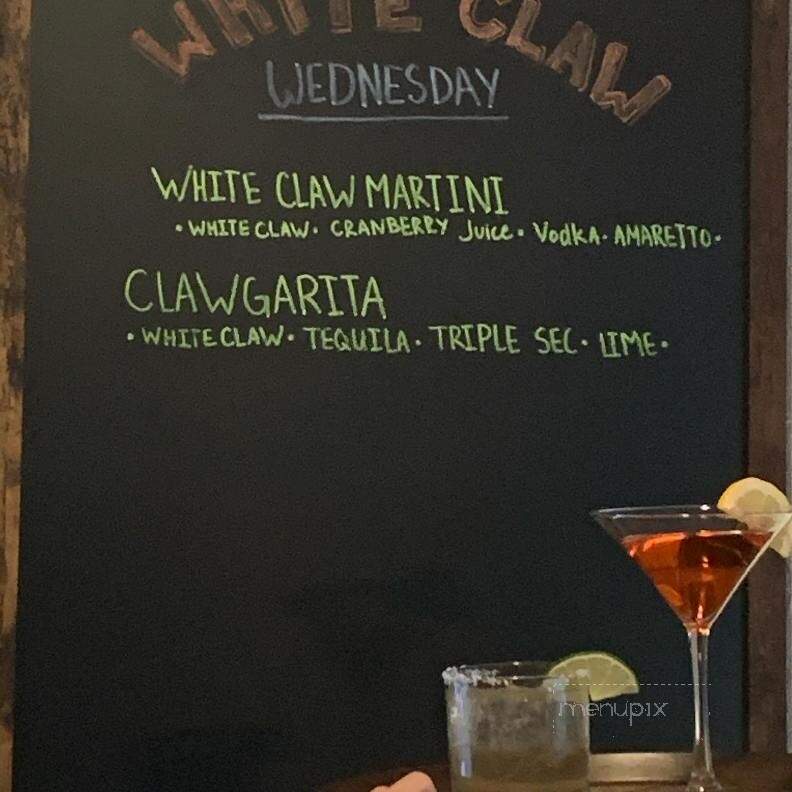 WHITE CLAW
WEDNESDAY
WHITE CLAW MARTINI
• WHITE CLAW • CRANBERRY Juice • Vodka • AMARETTO •
CLAWGARITA
• WHITE CLAW • TEQUILA • TRIPLE SEC • LIME •
menupix